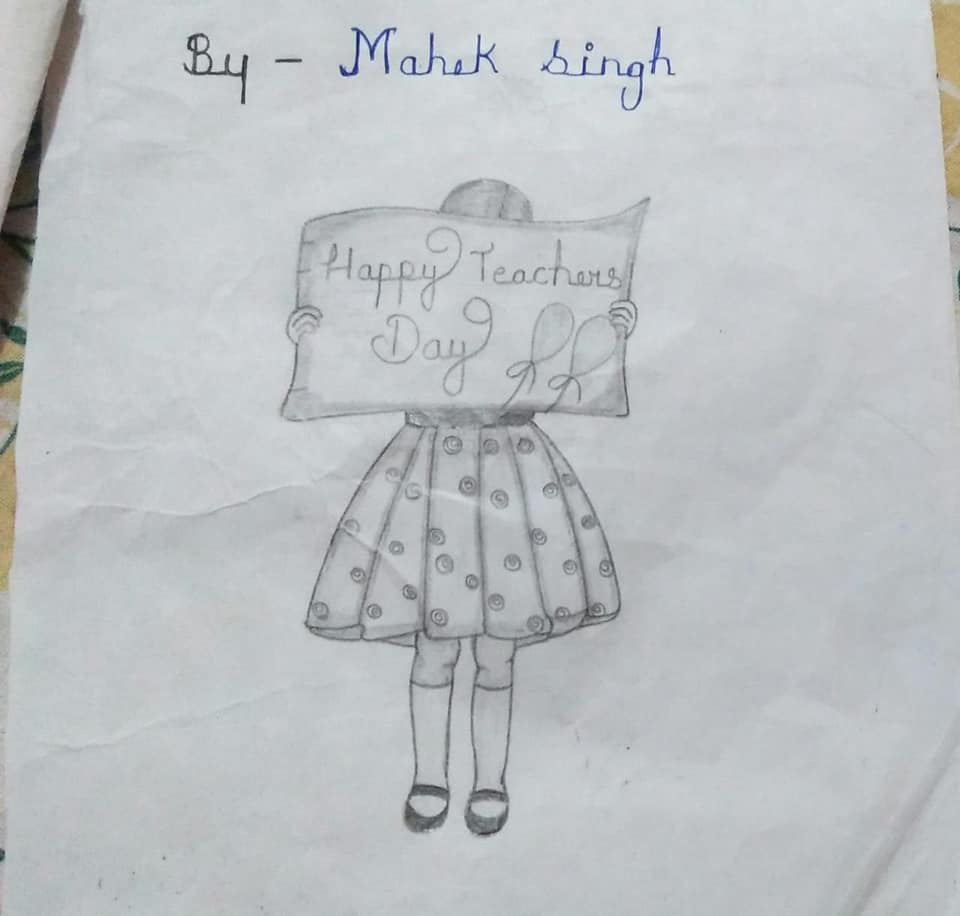 By - Mahek singh
Happy Teachers
Day